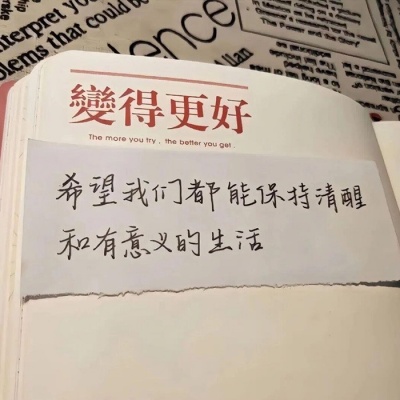 interpret you
blems that could be
變得更好
The more you try , the better you get .
希望我们都能保持清醒
和有意义的生活